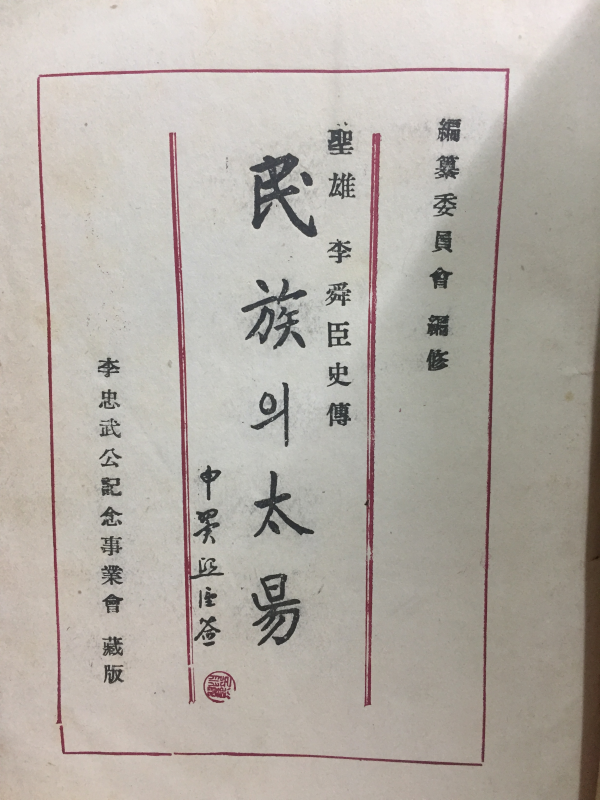 編纂委員會 編修
聖雄 李舜臣史傳
民族의太昜
申翼熙
李忠武公記念事業會 藏版